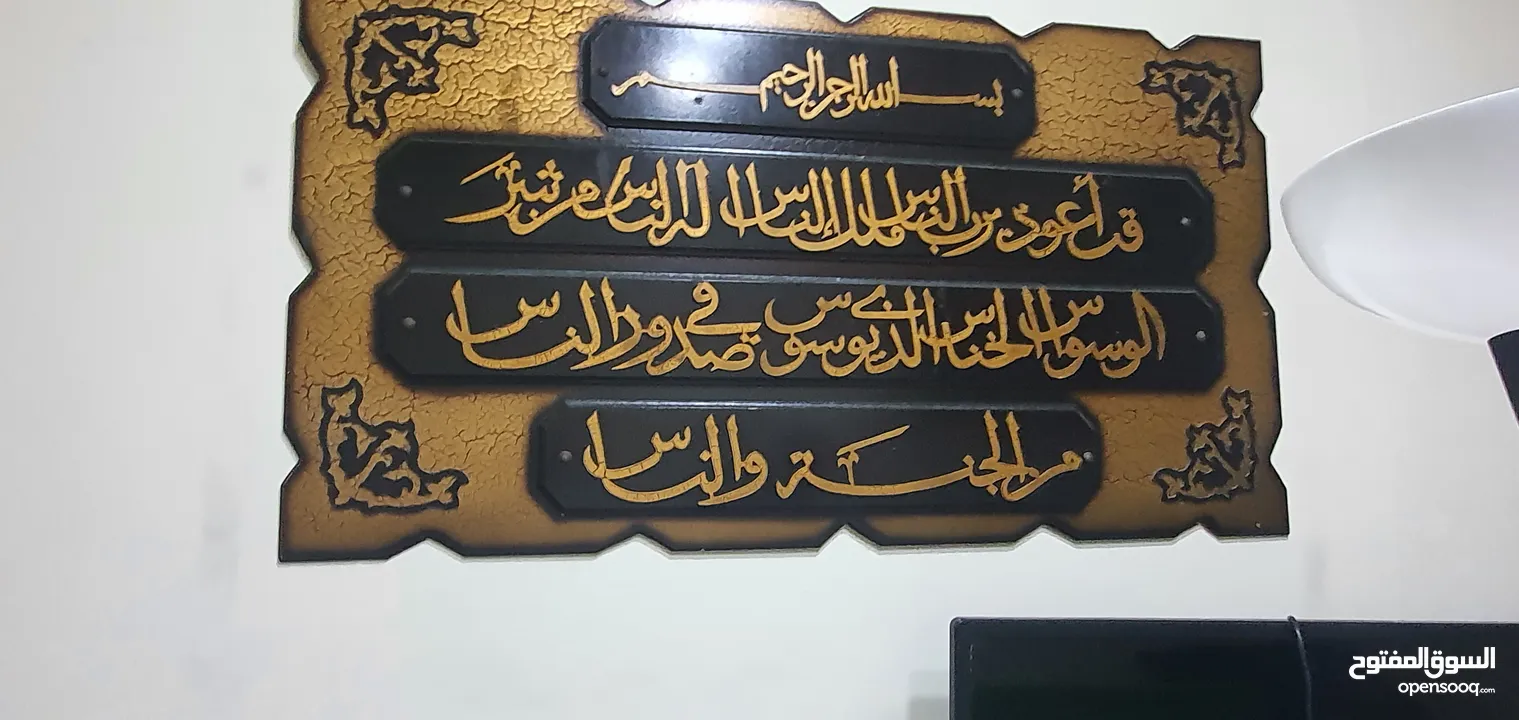 بسم الله الرحمن الرحيم
قل أعوذ برب الناس ملك الناس إله الناس من شر
الوسواس الخناس الذي يوسوس في صدور الناس
من الجنة والناس
السوق المفتوح
opensooq.com